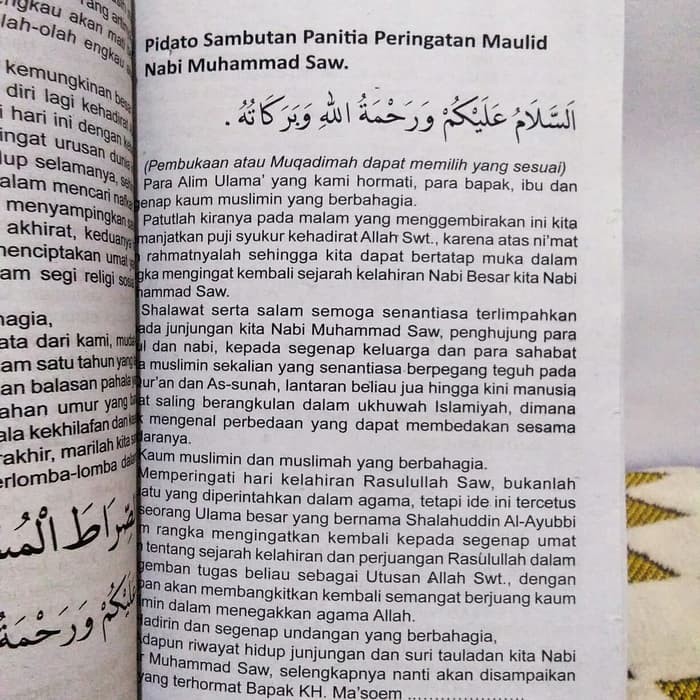 engkau akan mati
lah-olah engkau
kemungkinan
diri lagi kehadirat
hari ini dengan
ingat urusan dunia
up selamanya,
alam mencari nafkah
menyampingkan
akhirat, keduanya
menciptakan umat
am segi religi
hagia,
ata dari kami,
am satu tahun yang
an balasan pahala
ahan umur yang
ala kekhilafan dan
rakhir, marilah kita
erlomba-lomba
Pidato Sambutan Panitia Peringatan Maulid
Nabi Muhammad Saw.
اَلسَّلَامُ عَلَيْكُمْ وَرَحْمَةُ اللهِ وَبَرَكَاتُهُ .
(Pembukaan atau Muqadimah dapat memilih yang sesuai)
Para Alim Ulama' yang kami hormati, para bapak, ibu dan
enap kaum muslimin yang berbahagia.
Patutlah kiranya pada malam yang menggembirakan ini kita
manjatkan puji syukur kehadirat Allah Swt., karena atas ni'mat
rahmatnyalah sehingga kita dapat bertatap muka dalam
gka mengingat kembali sejarah kelahiran Nabi Besar kita Nabi
hammad Saw.
Shalawat serta salam semoga senantiasa terlimpahkan
ada junjungan kita Nabi Muhammad Saw, penghujung para
ul dan nabi, kepada segenap keluarga dan para sahabat
a muslimin sekalian yang senantiasa berpegang teguh pada
ur'an dan As-sunah, lantaran beliau jua hingga kini manusia
at saling berangkulan dalam ukhuwah Islamiyah, dimana
k mengenal perbedaan yang dapat membedakan sesama
daranya.
Kaum muslimin dan muslimah yang berbahagia.
Memperingati hari kelahiran Rasulullah Saw, bukanlah
atu yang diperintahkan dalam agama, tetapi ide ini tercetus
seorang Ulama besar yang bernama Shalahuddin Al-Ayubbi
m rangka mengingatkan kembali kepada segenap umat
tentang sejarah kelahiran dan perjuangan Rasulullah dalam
gemban tugas beliau sebagai Utusan Allah Swt., dengan
pan akan membangkitkan kembali semangat berjuang kaum
imin dalam menegakkan agama Allah.
Hadirin dan segenap undangan yang berbahagia,
Adapun riwayat hidup junjungan dan suri tauladan kita Nabi
r Muhammad Saw, selengkapnya nanti akan disampaikan
yang terhormat Bapak KH. Ma'soem ......................